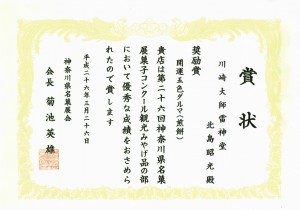 賞状
川崎大師雷神堂
北島昭光殿
奨励賞
開運五色ダルマ(煎餅)
貴店は第二十六回神奈川県名菓
展菓子コンクール観光みやげ品の部
において優秀な成績をおさめら
れたので賞します
平成二十六年三月二十六日
神奈川県名菓展会
会長 菊池英雄